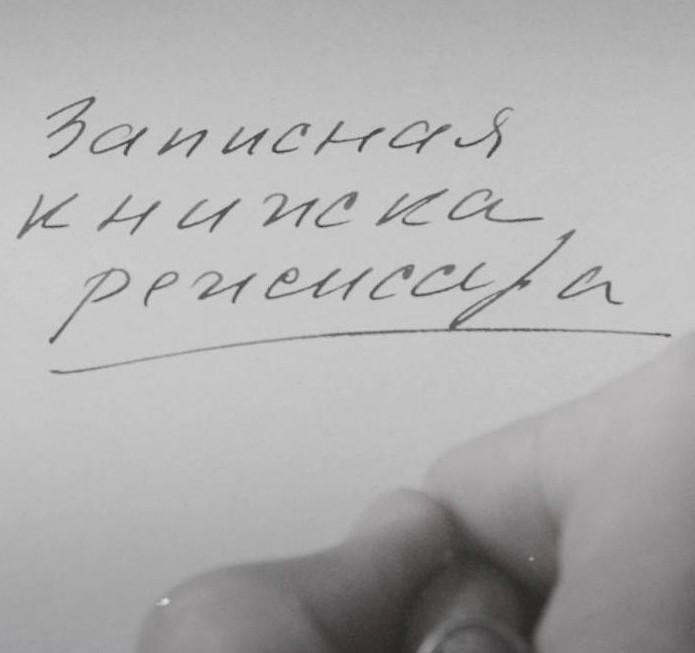 Записная
книжка
режиссёра